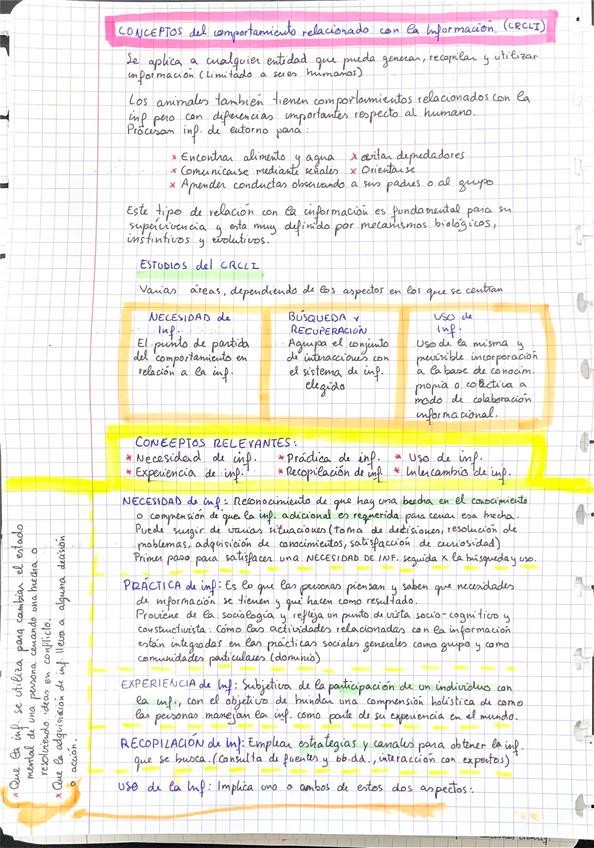 CONCEPTOS del comportamiento relacionado con la Información. (CRCLI)
Se aplica a cualquier entidad que pueda generar, recopilar y utilizar
información (Limitado a seres humanos)
Los animales también tienen comportamientos relacionados con la
inf pero con diferencias importantes respecto al humano.
Procesan inf. de entorno para:
× Encontrar alimento y agua × evitar depredadores
× Comunicarse mediante señales × Orientarse
× Aprender conductas observando a sus padres o al grupo
Este tipo de relación con la información es fundamental para su
supervivencia y esta muy definido por mecanismos biológicos,
instintivos y evolutivos.
ESTUDIOS del CRCLI
Varias áreas, dependiendo de los aspectos en los que se centran
NECESIDAD de
Inf.
El punto de partida
del comportamiento en
relación a la inf.
BÚSQUEDA Y
RECUPERACIÓN
Agrupa el conjunto
de interacciones con
el sistema de inf.
elegido
USO de
Inf.
Uso de la misma y
posible incorporación
a la base de conocim.
propia o colectiva a
modo de colaboración
informacional.
CONCEPTOS RELEVANTES:
* Necesidad de inf. * Práctica de inf. * Uso de inf.
* Experiencia de inf. * Recopilación de inf. * Intercambio de inf.
NECESIDAD de inf: Reconocimiento de que hay una brecha en el conocimiento
o comprensión de que la inf. adicional es requerida para cerrar esa brecha.
Puede surgir de varias situaciones (toma de decisiones, resolución de
problemas, adquisición de conocimientos, satisfacción de curiosidad)
Primer paso para satisfacer una NECESIDAD DE INF. seguida x la búsqueda y uso.
PRÁCTICA de inf: Es lo que las personas piensan y saben que necesidades
de información se tienen y qué hacen como resultado.
Proviene de la sociología y refleja un punto de vista socio-cognitivo y
constructivista: Cómo las actividades relacionadas con la información
están integradas en las prácticas sociales generales como grupo y como
comunidades particulares (dominio)
EXPERIENCIA de Inf: Subjetiva de la participación de un individuo con
la inf., con el objetivo de brindar una comprensión holística de como
las personas manejan la inf. como parte de su experiencia en el mundo.
RECOPILACIÓN de Inf: Emplear estrategias y canales para obtener la inf.
que se busca. (consulta de fuentes y bb.dd., interacción con expertos)
USO de la Inf: Implica uno o ambos de estos dos aspectos:
* Que la inf. se utiliza para cambiar el estado
mental de una persona cerrando una brecha o
resolviendo ideas en conflicto.
* Que la adquisición de inf. lleva a alguna decisión
o acción.